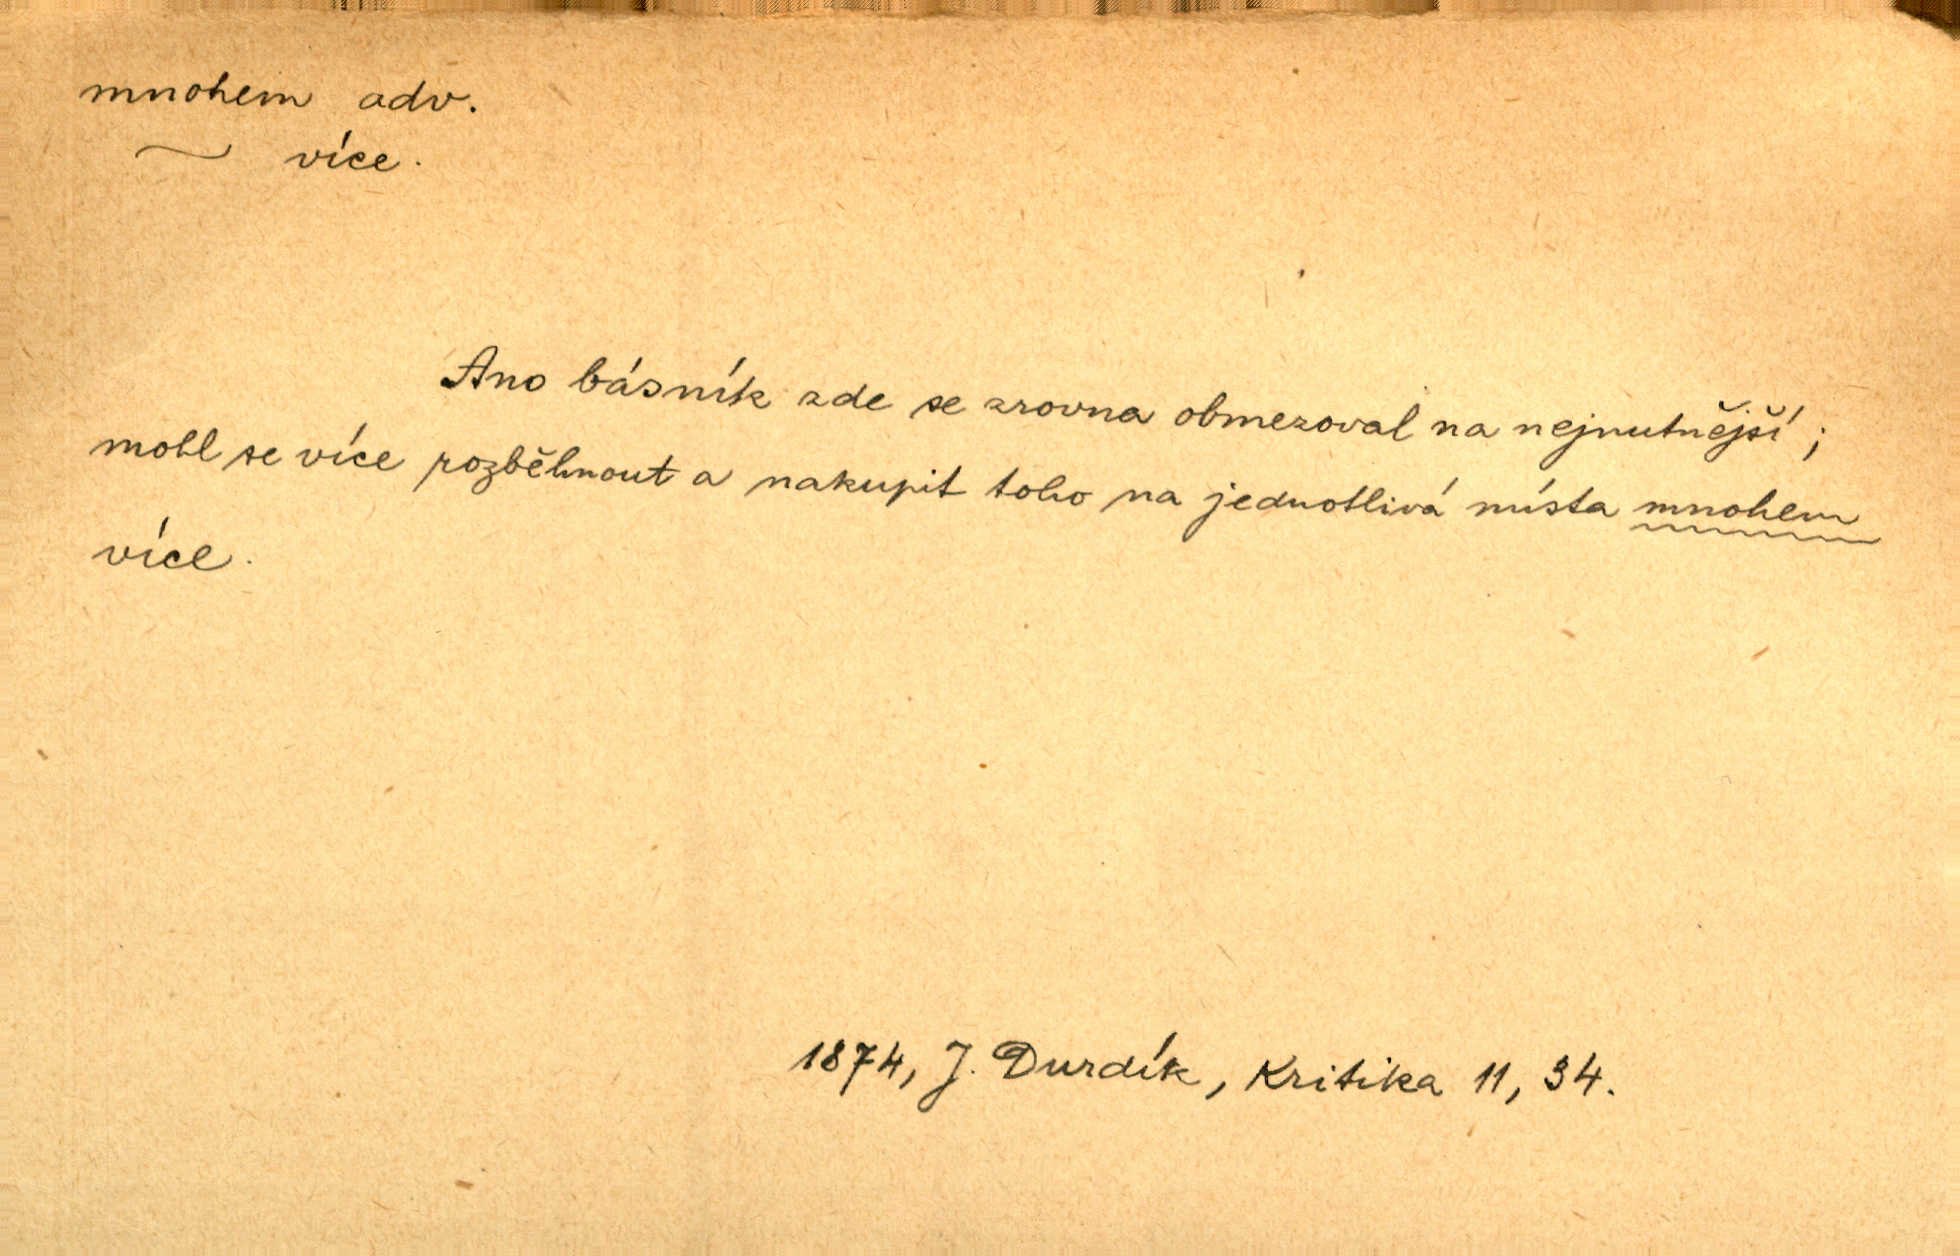 mnohem adv.
~ více.
Ano básník zde se zrovna obmezoval na nejnutnější;
mohl se více rozběhnout a nakupit toho na jednotlivá místa mnohem
více.
1874, J. Durdík, Kritika 11, 34.